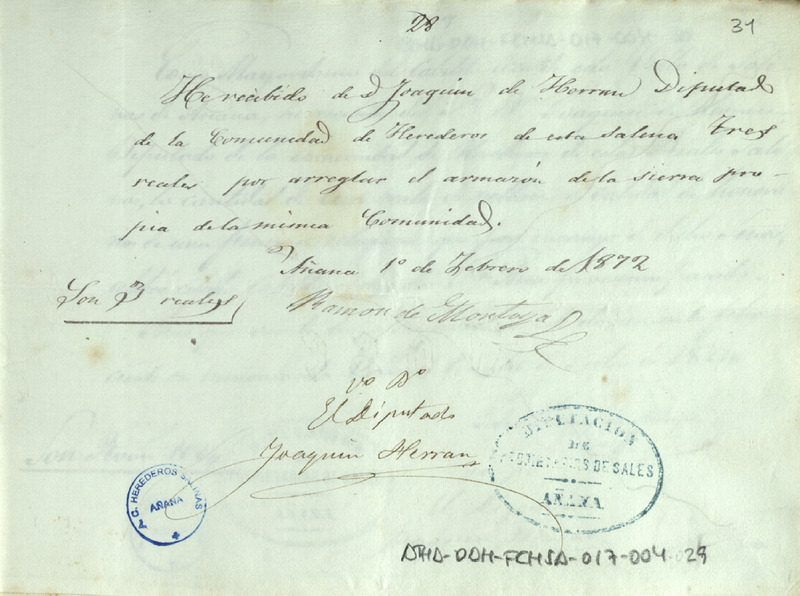 28
31
He recibido de D. Joaquin de Herran Diputad
de la Comunidad de Herederos de esta Salina Tres
reales por arreglar el armazón de la sierra pro-
pia de la misma Comunidad.
Añana 1º de Febrero de 1872
Son 3 reales
Ramon de Montoya
Vº Bº
El Diputado
Joaquin Herran
DIPUTACION
DE
DE SALES
AÑANA
C. HEREDEROS SALINAS
AÑANA
ATHA-DAH-FCHSA-017-004 29